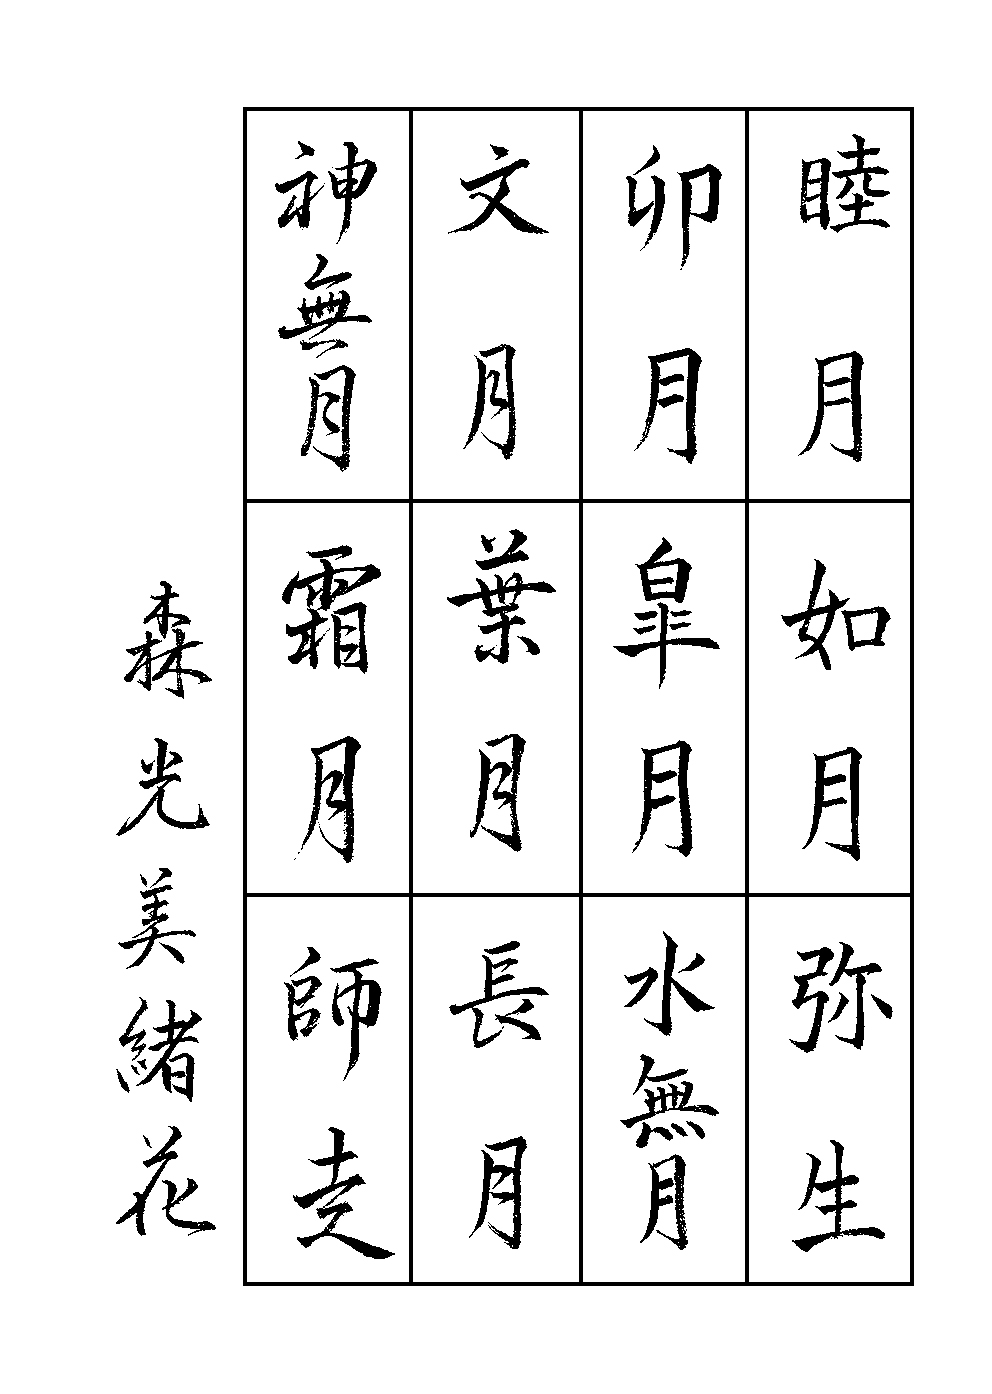 睦月
如月
弥生
卯月
皐月
水無月
文月
葉月
長月
神無月
霜月
師走
森光美緒花